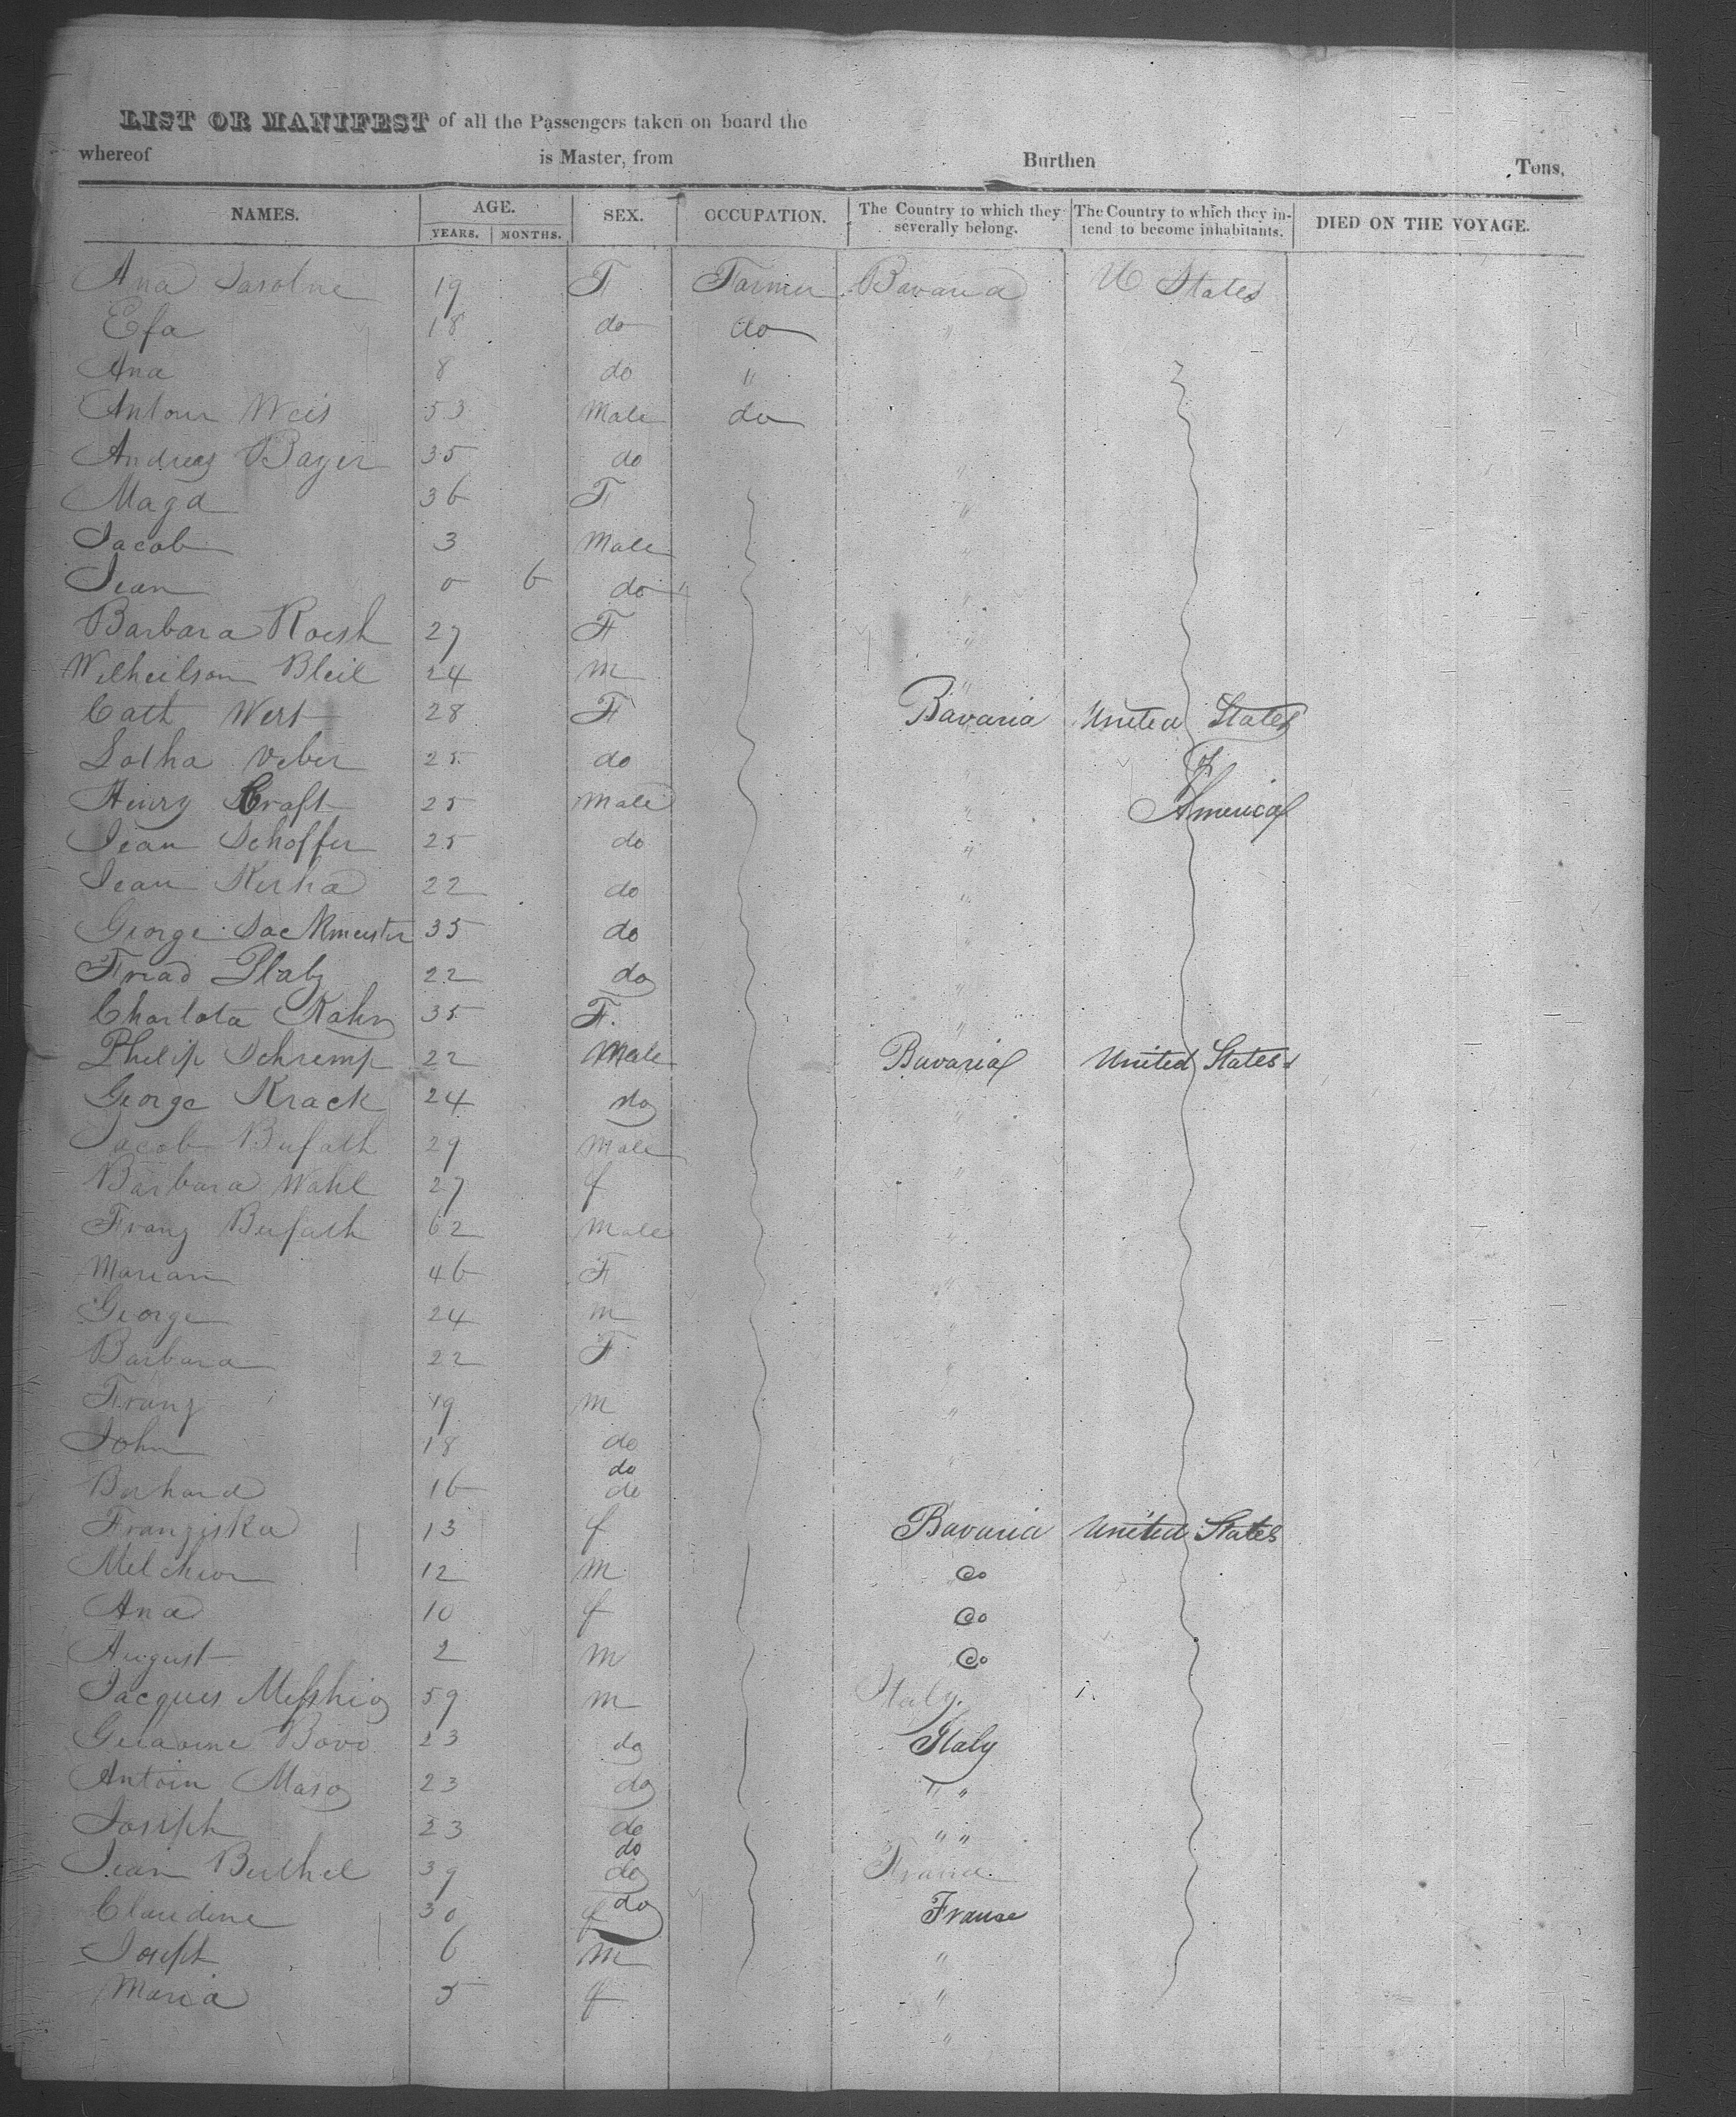 LIST OR MANIFEST of all the Passengers taken on board the
whereof is Master, from Burthen Tons,
NAMES. AGE. SEX. OCCUPATION. The Country to which they severally belong. The Country to which they intend to become inhabitants. DIED ON THE VOYAGE.
YEARS. MONTHS.
Ana 19 F Farmer Bavaria U States
Efa 18 do do "
Ana 8 do "
Antoin Weis 53 Male do
Andreas Bayer 35 do "
Maga 36 F "
Jacob 3 Male "
Jean 0 6 do "
Barbara Roesh 27 F "
Wilheilson Bleil 24 m "
Cath Wert 28 F Bavaria United States
Lotha Veber 25 do of
Henry Craft 25 Male " America
Jean Schoffer 25 do "
Jean Kerha 22 do "
George Sackmeister 35 do "
Friad Platz 22 do "
Charlota Kahn 35 F. "
Philip Schremp 22 Male Bavaria United States
George Krack 24 do "
Jacob Bufath 29 Male "
Barbara Wahl 27 f "
Franz Bufath 62 Male "
Marian 46 F "
George 24 m "
Barbara 22 F "
Franz 19 m "
John 18 do "
do
Berhard 16 do
Franziska 13 f Bavaria United States
Melchior 12 m Do
Ana 10 f Do
August 2 m Do
Jacques 59 m Italy
Bovo 23 do Italy
Antoin Maso 23 do " "
Joseph 23 do " "
do
Jean Buthel 39 do France
Claudine 30 f do France
Joseph 6 m "
Maria 5 f "
"